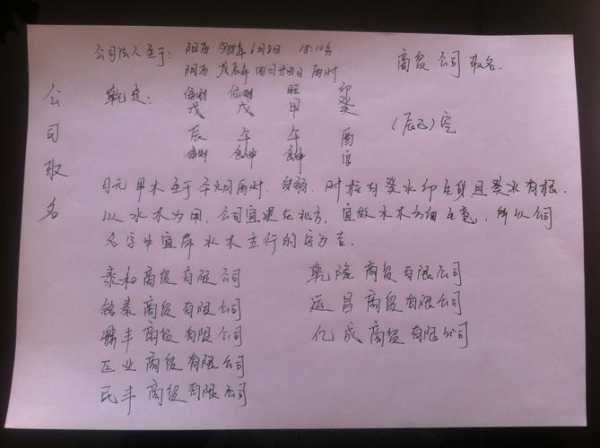 公司法人生于: 阳历 年6月8日 18:10分
阴历 戊辰年 四月廿四日 酉时
商贸公司取名
公司取名
乾造: 偏财 偏财 印
戊 戊 甲 癸
辰 午 午 酉
(辰巳)空
偏财 官
日元甲木生于午火月酉时, 时柱有癸水印且癸水有根,
以水木为用, 公司宜在北方, 宜做水木方面生意, 所以公司
名字中宜有水木五行的字为吉.
泰和商贸有限公司
乾隆商贸有限公司
泰商贸有限公司
运昌商贸有限公司
鼎丰商贸有限公司
亿成商贸有限公司
正业商贸有限公司
民丰商贸有限公司